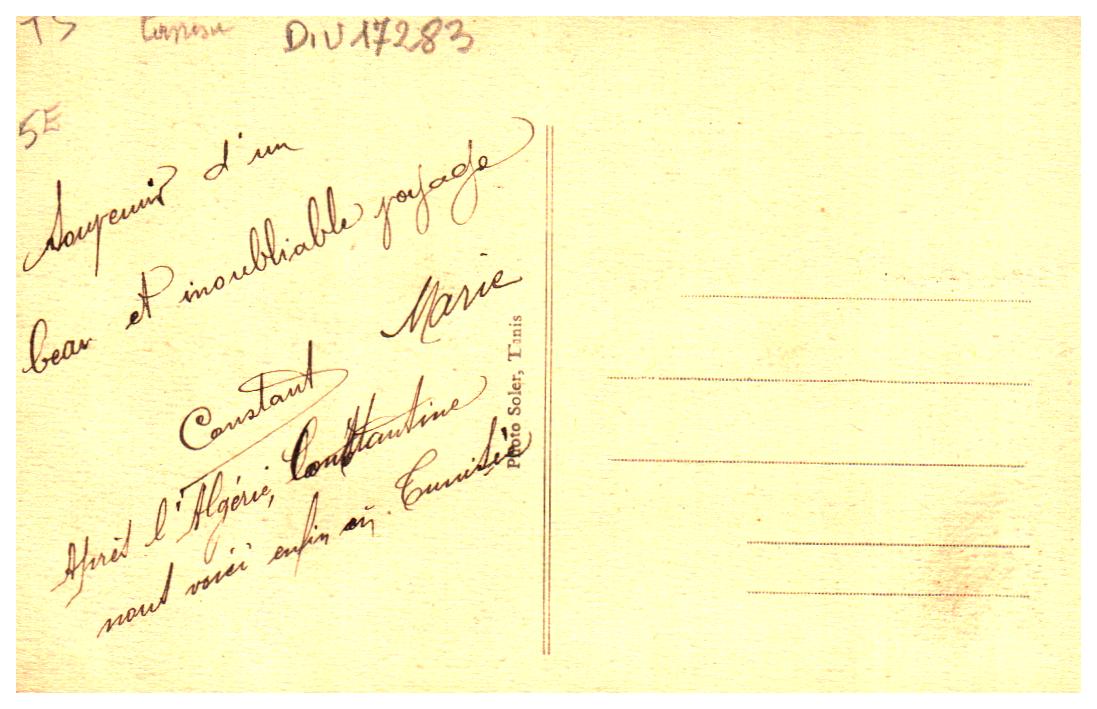 DIV 17283
5E
Souvenir d'un
beau et inoubliable voyage
Marie
Constant
Après l'Algérie, Constantine
nous voici enfin en Tunisie
Photo Soler, Tunis